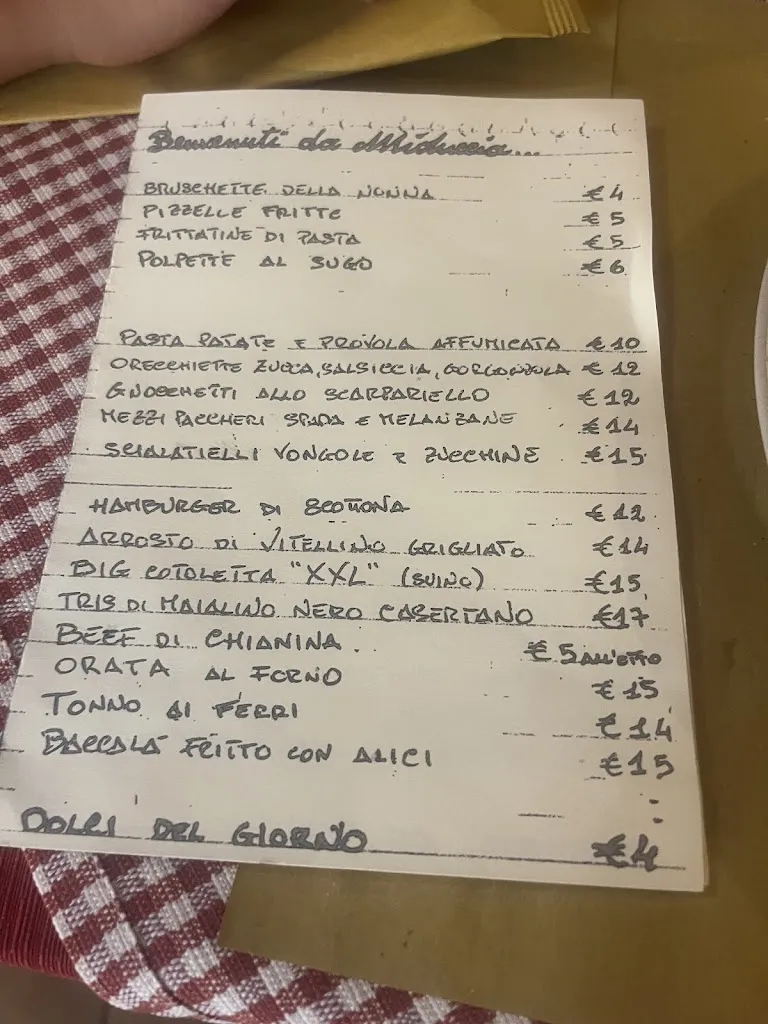 Benvenuti da Miduccia...
BRUSCHETTE DELLA NONNA €4
PIZZELLE FRITTE €5
FRITTATINE DI PASTA €5
POLPETTE AL SUGO €6
PASTA PATATE E PROVOLA AFFUMICATA €10
ORECCHIETTE ZUCCA, SALSICCIA, GORGONZOLA €12
GNOCCHETTI ALLO SCARPARIELLO €12
MEZZI PACCHERI SPADA E MELANZANE €14
SCIALATIELLI VONGOLE E ZUCCHINE €15
HAMBURGER DI SCOTTONA €12
ARROSTO DI VITELLINO GRIGLIATO €14
BIG COTOLETTA "XXL" (SUINO) €15
TRIS DI MAIALINO NERO CASERTANO €17
BEEF DI CHIANINA €5 ALL'ETTO
ORATA AL FORNO €15
TONNO AI FERRI €14
BACCALA' FRITTO CON ALICI €15
DOLCI DEL GIORNO €4